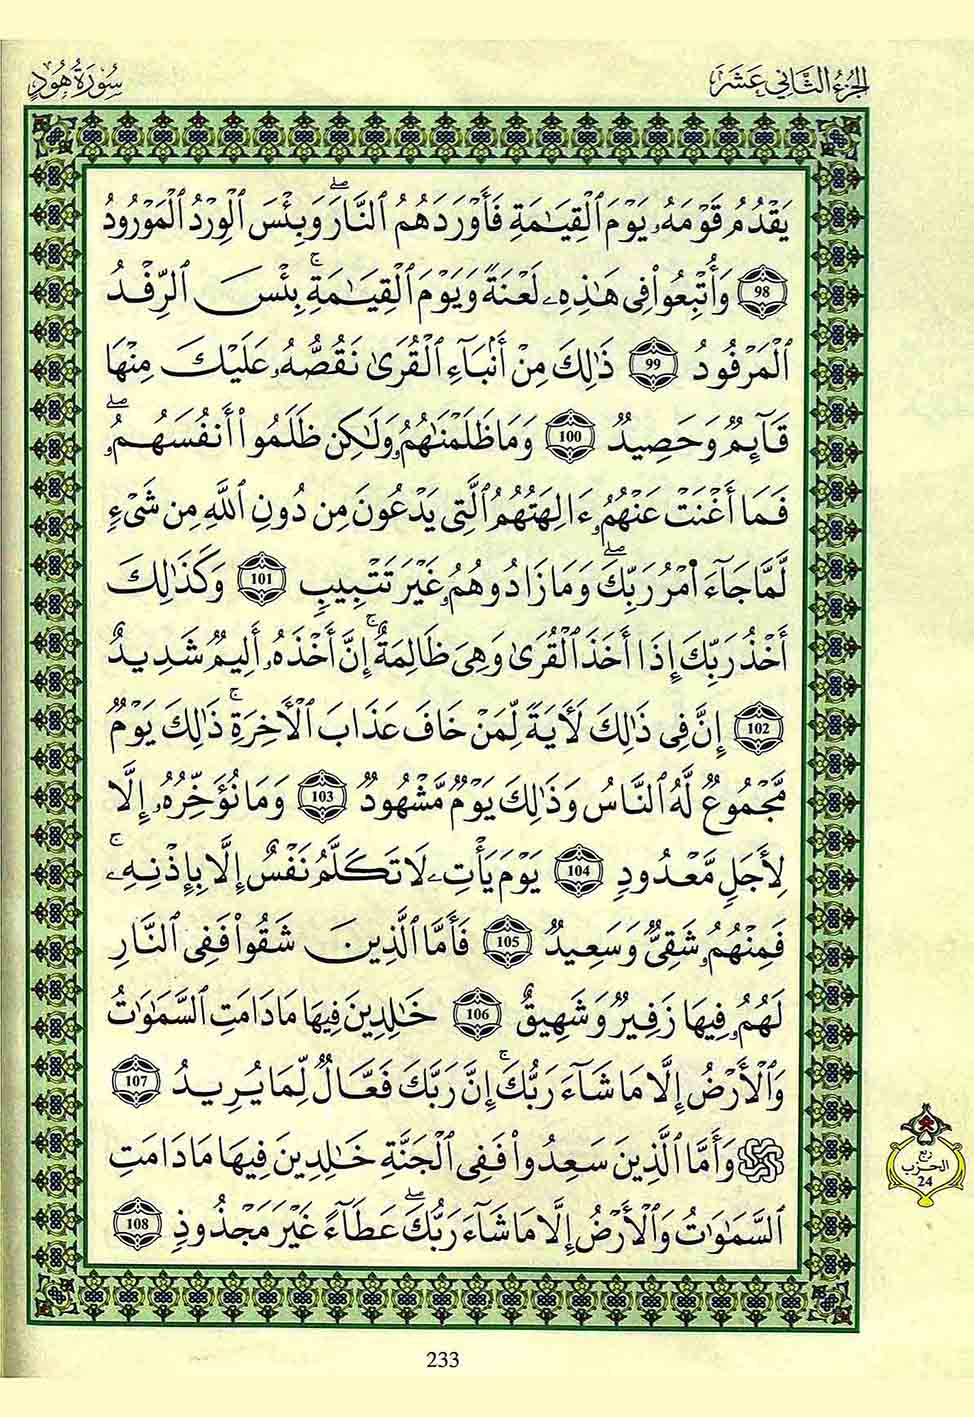 الجزء الثاني عشر
سورة هود
يَقْدُمُ قَوْمَهُۥ يَوْمَ ٱلْقِيَـٰمَةِ فَأَوْرَدَهُمُ ٱلنَّارَ ۖ وَبِئْسَ ٱلْوِرْدُ ٱلْمَوْرُودُ
98 وَأُتْبِعُوا۟ فِى هَـٰذِهِۦ لَعْنَةً وَيَوْمَ ٱلْقِيَـٰمَةِ ۚ بِئْسَ ٱلرِّفْدُ
ٱلْمَرْفُودُ 99 ذَٰلِكَ مِنْ أَنۢبَآءِ ٱلْقُرَىٰ نَقُصُّهُۥ عَلَيْكَ مِنْهَا
قَآئِمٌ وَحَصِيدٌ 100 وَمَا ظَلَمْنَـٰهُمُۥ وَلَـٰكِن ظَلَمُوٓا۟ أَنفُسَهُمُۥ ۖ
فَمَا أَغْنَتْ عَنْهُمُۥ ءَالِهَتُهُمُ ٱلَّتِى يَدْعُونَ مِن دُونِ ٱللَّهِ مِن شَىْءٍ
لَّمَّا جَآءَ ا۬مْرُ رَبِّكَ ۖ وَمَا زَادُوهُمُۥ غَيْرَ تَتْبِيبٍ 101 وَكَذَٰلِكَ
أَخْذُ رَبِّكَ إِذَا أَخَذَ ٱلْقُرَىٰ وَهِىَ ظَـٰلِمَةٌ ۚ إِنَّ أَخْذَهُۥ أَلِيمٌ شَدِيدٌ
102 إِنَّ فِى ذَٰلِكَ لَأَيَةً لِّمَنْ خَافَ عَذَابَ ٱلْأَخِرَةِ ۚ ذَٰلِكَ يَوْمٌ
مَّجْمُوعٌ لَّهُ ٱلنَّاسُ وَذَٰلِكَ يَوْمٌ مَّشْهُودٌ 103 وَمَا نُؤَخِّرُهُۥ إِلَّا
لِأَجَلٍ مَّعْدُودٍ 104 يَوْمَ يَأْتِۦ لَا تَكَلَّمُ نَفْسٌ إِلَّا بِإِذْنِهِۦ ۚ
فَمِنْهُمُۥ شَقِىٌّ وَسَعِيدٌ 105 فَأَمَّا ٱلَّذِينَ شَقُوا۟ فَفِى ٱلنَّارِ
لَهُمُۥ فِيهَا زَفِيرٌ وَشَهِيقٌ 106 خَـٰلِدِينَ فِيهَا مَا دَامَتِ ٱلسَّمَـٰوَٰتُ
وَٱلْأَرْضُ إِلَّا مَا شَآءَ رَبُّكَ ۚ إِنَّ رَبَّكَ فَعَّالٌ لِّمَا يُرِيدُ 107
وَأَمَّا ٱلَّذِينَ سَعِدُوا۟ فَفِى ٱلْجَنَّةِ خَـٰلِدِينَ فِيهَا مَا دَامَتِ
ٱلسَّمَـٰوَٰتُ وَٱلْأَرْضُ إِلَّا مَا شَآءَ رَبُّكَ ۖ عَطَآءً غَيْرَ مَجْذُوذٍ 108
ربع
الحزب
24
233